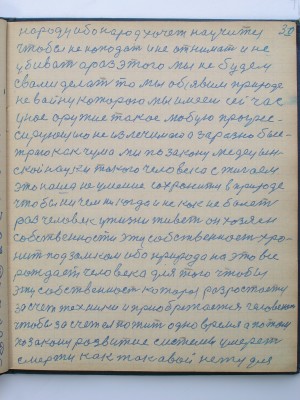 30
народу ибо народ хочет научиту
чтобы не походом и не отнимат и не
убиват а раз этого мы не будем
своли делат то мы объявим природе
не вайну которого мы имеем сейчас
иное оружие такое любую прогрес-
сирующию не излечимаю заразно быс-
траю как чума мы по закону медецин-
ской науки такого человека с жигаем
это наша не умение сохронит в природе
чтобы ни чем никогда и как не болет
раз человек у жизни живет он хозяем
собственности эту собственност хро-
нит под замком ибо природа на это все
рождает человека для того чтобы
эту собственност которая разростаету
за счет техники и приображается человеком
чтобы за счет ел пожит одно время а потом
по закону развитие системы умерет
смерти как токавой нету для